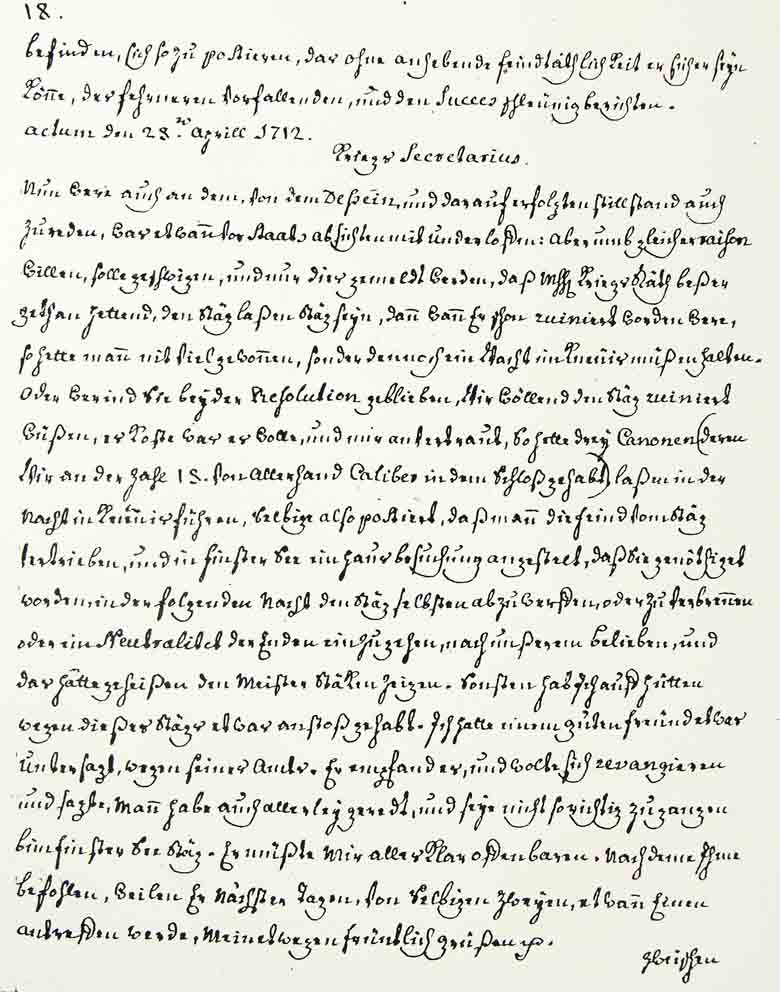 18.
befinden, sich so zu postieren, das ohne anhebende feindtäthlichkeit er sicher seyn
könne, des fehrneren vorfallenden, und den Succes schleünig berichten.
actum den 28.ᵗᵉⁿ Aprill 1712.
Kriegs Secretarius.
Nun were auch an dem, von dem Dessein, und darauf erfolgten stillstand auch
zu reden, was etwan vor Staats absichten mit underloffen: aber umb gleicher raison
willen, solle geschwigen, und nur dis gemeldt werden, daß Kriegs Räth beßer
gethan hettend, den Stäg laßen Stäg seyn, dann wann Er schon ruiniert worden were,
so hette mann nit viel gewonnen, sonder dennoch ein Wacht im müßen halten.
Oder werind Sie bey der Resolution geblieben, Wir wöllend den Stäg ruiniert
wüßen, es koste was es wolle, und mir anvertraut, So hette drey Canonen (deren
Wir an der Zahl 18. von allerhand Caliber in dem Schloß gehabt) laßen in der
Nacht in führen, selbige also postiert, daß mann die feind vom Stäg
vertrieben, und in finster See ein haus besuchung angestelt, daß Sie genöthiget
worden, in der folgenden Nacht den Stäg selbsten abzuwerffen, oder zu verbrennen
oder ein Neutralitet der Enden einzugehen, nach unßerem belieben, und
das hätte geheißen den Meister Stäken zeigen. Sonsten hab Ich auf Hütten
wegen dießes Stägs etwas anstoß gehabt. Ich hatte einem guten freünd etwas
Untersagt, wegen seines Amts. Er empfand es, und wolte sich revangieren
und sagte, Mann habe auch allerley geredt, und seye nicht so richtig zugangen
bim finster See Stäg. Er müßte Mir alles klar offenbaren. Nach deme Ihme
befohlen, weilen Er Nächster Tagen, von selbigen zweyen, etwann Einen
antreffen werde, Meinetwegen früntlich grüßen
zwüschen